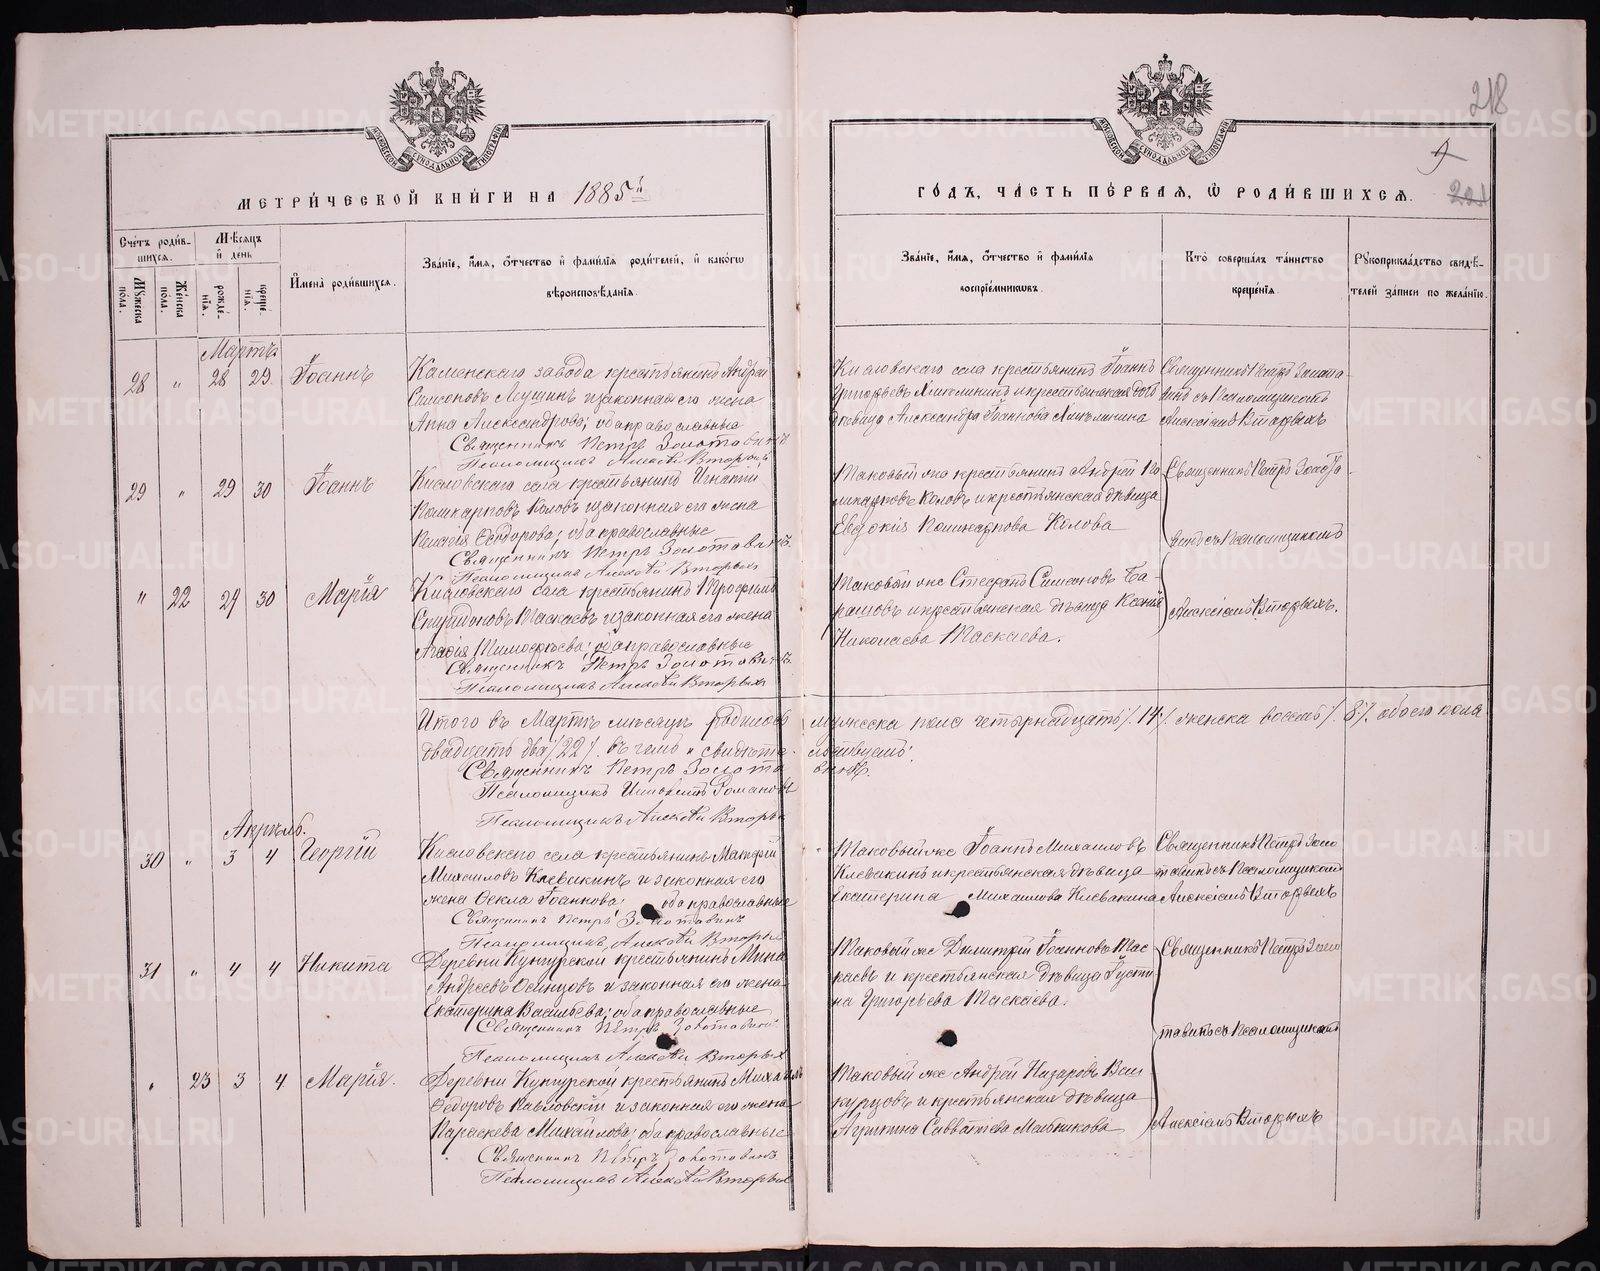 218
9
221
МЕТРИ́ЧЕСКОЙ КНИ́ГИ НА 1885й
ГО́ДЪ, ЧА́СТЬ ПЕ́РВАЯ, Ѡ҆ РОДИ́ВШИХСѦ.
Сче́тъ роди́в-
шихсѧ.
Мѣ́сѧцъ
и҆ де́нь
Мꙋ́жеска
пола.
Же́нска
пола.
рожде́-
нїѧ.
креще́-
нїѧ.
И҆мена̀ роди́вшихсѧ.
Зва́нїе, и҆́мѧ, ѻ҆́тчество и҆ фами́лїѧ роди́телей, и҆ како́гѡ
вѣроисповѣ́данїѧ.
Зва́нїе, и҆́мѧ, ѻ҆́тчество и҆ фами́лїѧ
воспрїе́мникѡвъ.
Кто̀ соверша́лъ та́инство
креще́нїѧ.
Рꙋкоприкла́дство свидѣ́-
телей за́писи по жела́нїю.
Мартъ
28 " 28 29 Іоаннъ
Каменскаго завода крестьянинъ Андрей
Самсоновъ Мушинъ и законная его жена
Анна Александрова; оба православные
Священникъ Петръ Золотавинъ
Псаломщикъ Алексѣй Вторыхъ
Кисловскаго села крестьянинъ Іоаннъ
Григорьевъ и крестьянская
дѣвица Александра Іоаннова
Священникъ Петръ Золота-
винъ съ Псаломщикомъ
Алексіемъ Вторыхъ
29 " 29 30 Іоаннъ
Кисловскаго села крестьянинъ Игнатій
Поликарповъ Коловъ и законная его жена
Пелагія Ѳеодорова; оба православные
Священникъ Петръ Золотавинъ
Псаломщикъ Алексѣй Вторыхъ
Таковый же крестьянинъ Андрей По
ликарповъ Коловъ и крестьянская дѣвица
Евдокія Поликарпова Колова
Священникъ Петръ Золота-
винъ съ Псаломщикомъ
" 22 29 30 Марія
Кисловскаго села крестьянинъ Трофимъ
Спиридоновъ Таскаевъ и законная его жена
Агафія Тимофѣева; оба православные
Священникъ Петръ Золотавинъ
Псаломщикъ Алексѣй Вторыхъ
Таковый же Стефанъ Симеоновъ Ба-
рашовъ и крестьянская дѣвица Ксенія
Николаева Таскаева.
Алексіемъ Вторыхъ.
Итого въ Мартѣ мѣсяцѣ родилось мужеска пола четырнадцать /14/ женска восемь /8/ обоего пола
двадцать два /22/. въ чемъ и свидѣте-льствуемъ:
Священникъ Петръ Золотавинъ.
Псаломщикъ Романовъ
Псаломщикъ Алексѣй Вторыхъ
Апрѣль.
30 " 3 4 Георгій
Кисловскаго села крестьянинъ Матфей
Михаиловъ Клевакинъ и законная его
жена Ѳекла Іоаннова; оба православные
Священникъ Петръ Золотавинъ
Псаломщикъ Алексѣй Вторыхъ
Таковый же Іоаннъ Михаиловъ
Клевакинъ и крестьянская дѣвица
Екатерина Михаилова Клевакина
Священникъ Петръ Золо
тавинъ съ Псаломщикомъ
Алексіемъ Вторыхъ
31 " 4 4 Никита
Деревни Кунгурской крестьянинъ Мина
Андреевъ Осинцовъ и законная его жена
Екатерина Васильева; оба православные
Священникъ Петръ Золотавинъ
Псаломщикъ Алексѣй Вторыхъ
Таковый же Димитрій Іоанновъ Тас
каевъ и крестьянская дѣвица Іусти
на Григорьева Таскаева.
Священникъ Петръ Золо
тавинъ съ Псаломщикомъ
" 23 3 4 Марія.
Деревни Кунгурской крестьянинъ Михаилъ
Ѳедоровъ Павловскій и законная его жена
Параскева Михайлова; оба православные
Священникъ Петръ Золотавинъ
Псаломщикъ Алексѣй Вторыхъ
Таковый же Андрей Назаровъ Вши
курцовъ и крестьянская дѣвица
Агрипина Савватѣева Мельникова
Алексіемъ Вторыхъ